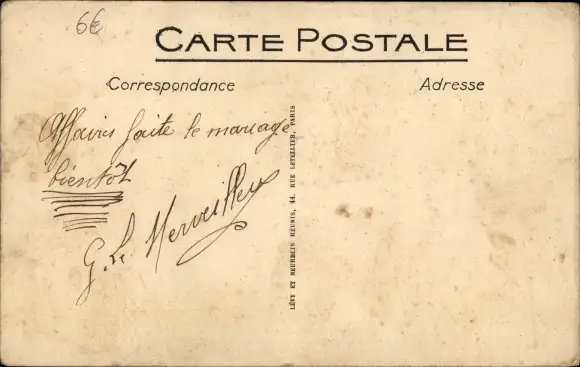 6€
CARTE POSTALE
Correspondance
Adresse
Affaires faite le mariage
bientôt
G. Le Merveilleux
LÉVY ET NEURDEIN RÉUNIS, 44, RUE LETELLIER, PARIS